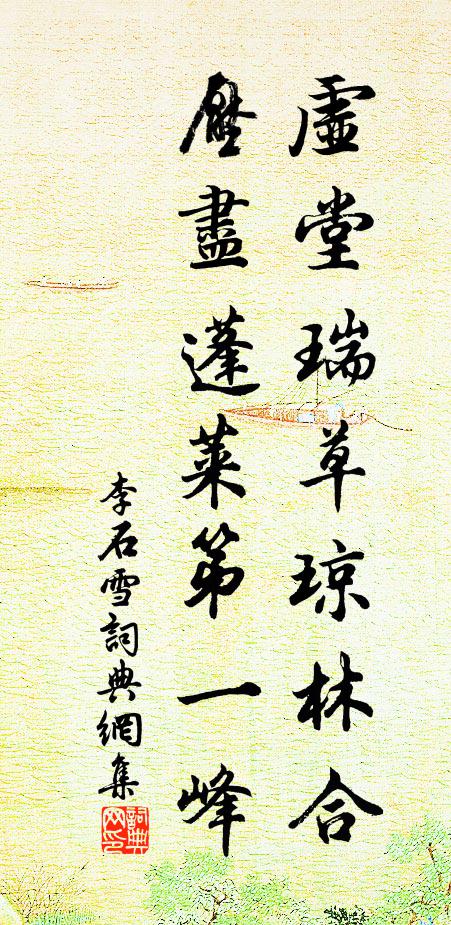 虛堂瑞草琼林合
壓盡蓬萊第一峰
李石雪詞典網集
詞典
网印